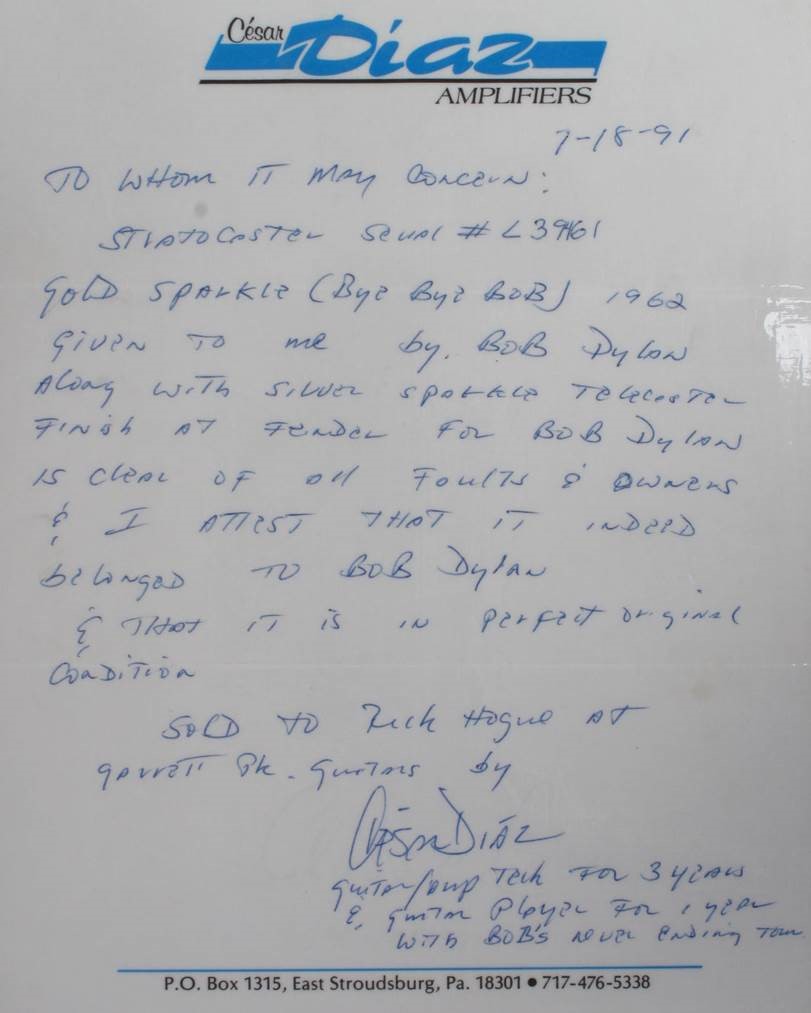 César
Díaz
AMPLIFIERS
7-18-91
TO WHOM IT MAY CONCERN:
STRATOCASTER SERIAL # L39461
GOLD SPARKLE (BYE BYE BOB) 1962
GIVEN TO me by. BOB DylAN
Along WITH SILVER SPARKLE TELECASTER
FINISH AT FENDER FOR BOB DylAN
IS CLEAR OF All FAULTS & OWNERS
& I ATTEST THAT IT INDEED
belONGED TO BOB DylAN
& THAT IT IS IN PERFECT ORIGINAL
CONDITION
SOLD TO Rick Hogue AT
GARRETT PK. GUITARS by
CÉSAR DÍAZ
GUITAR/AMP TECH FOR 3 YEARS
& GUITAR PLAYER FOR 1 YEAR
WITH BOB'S NEVER ENDING TOUR
P.O. Box 1315, East Stroudsburg, Pa. 18301 ● 717-476-5338